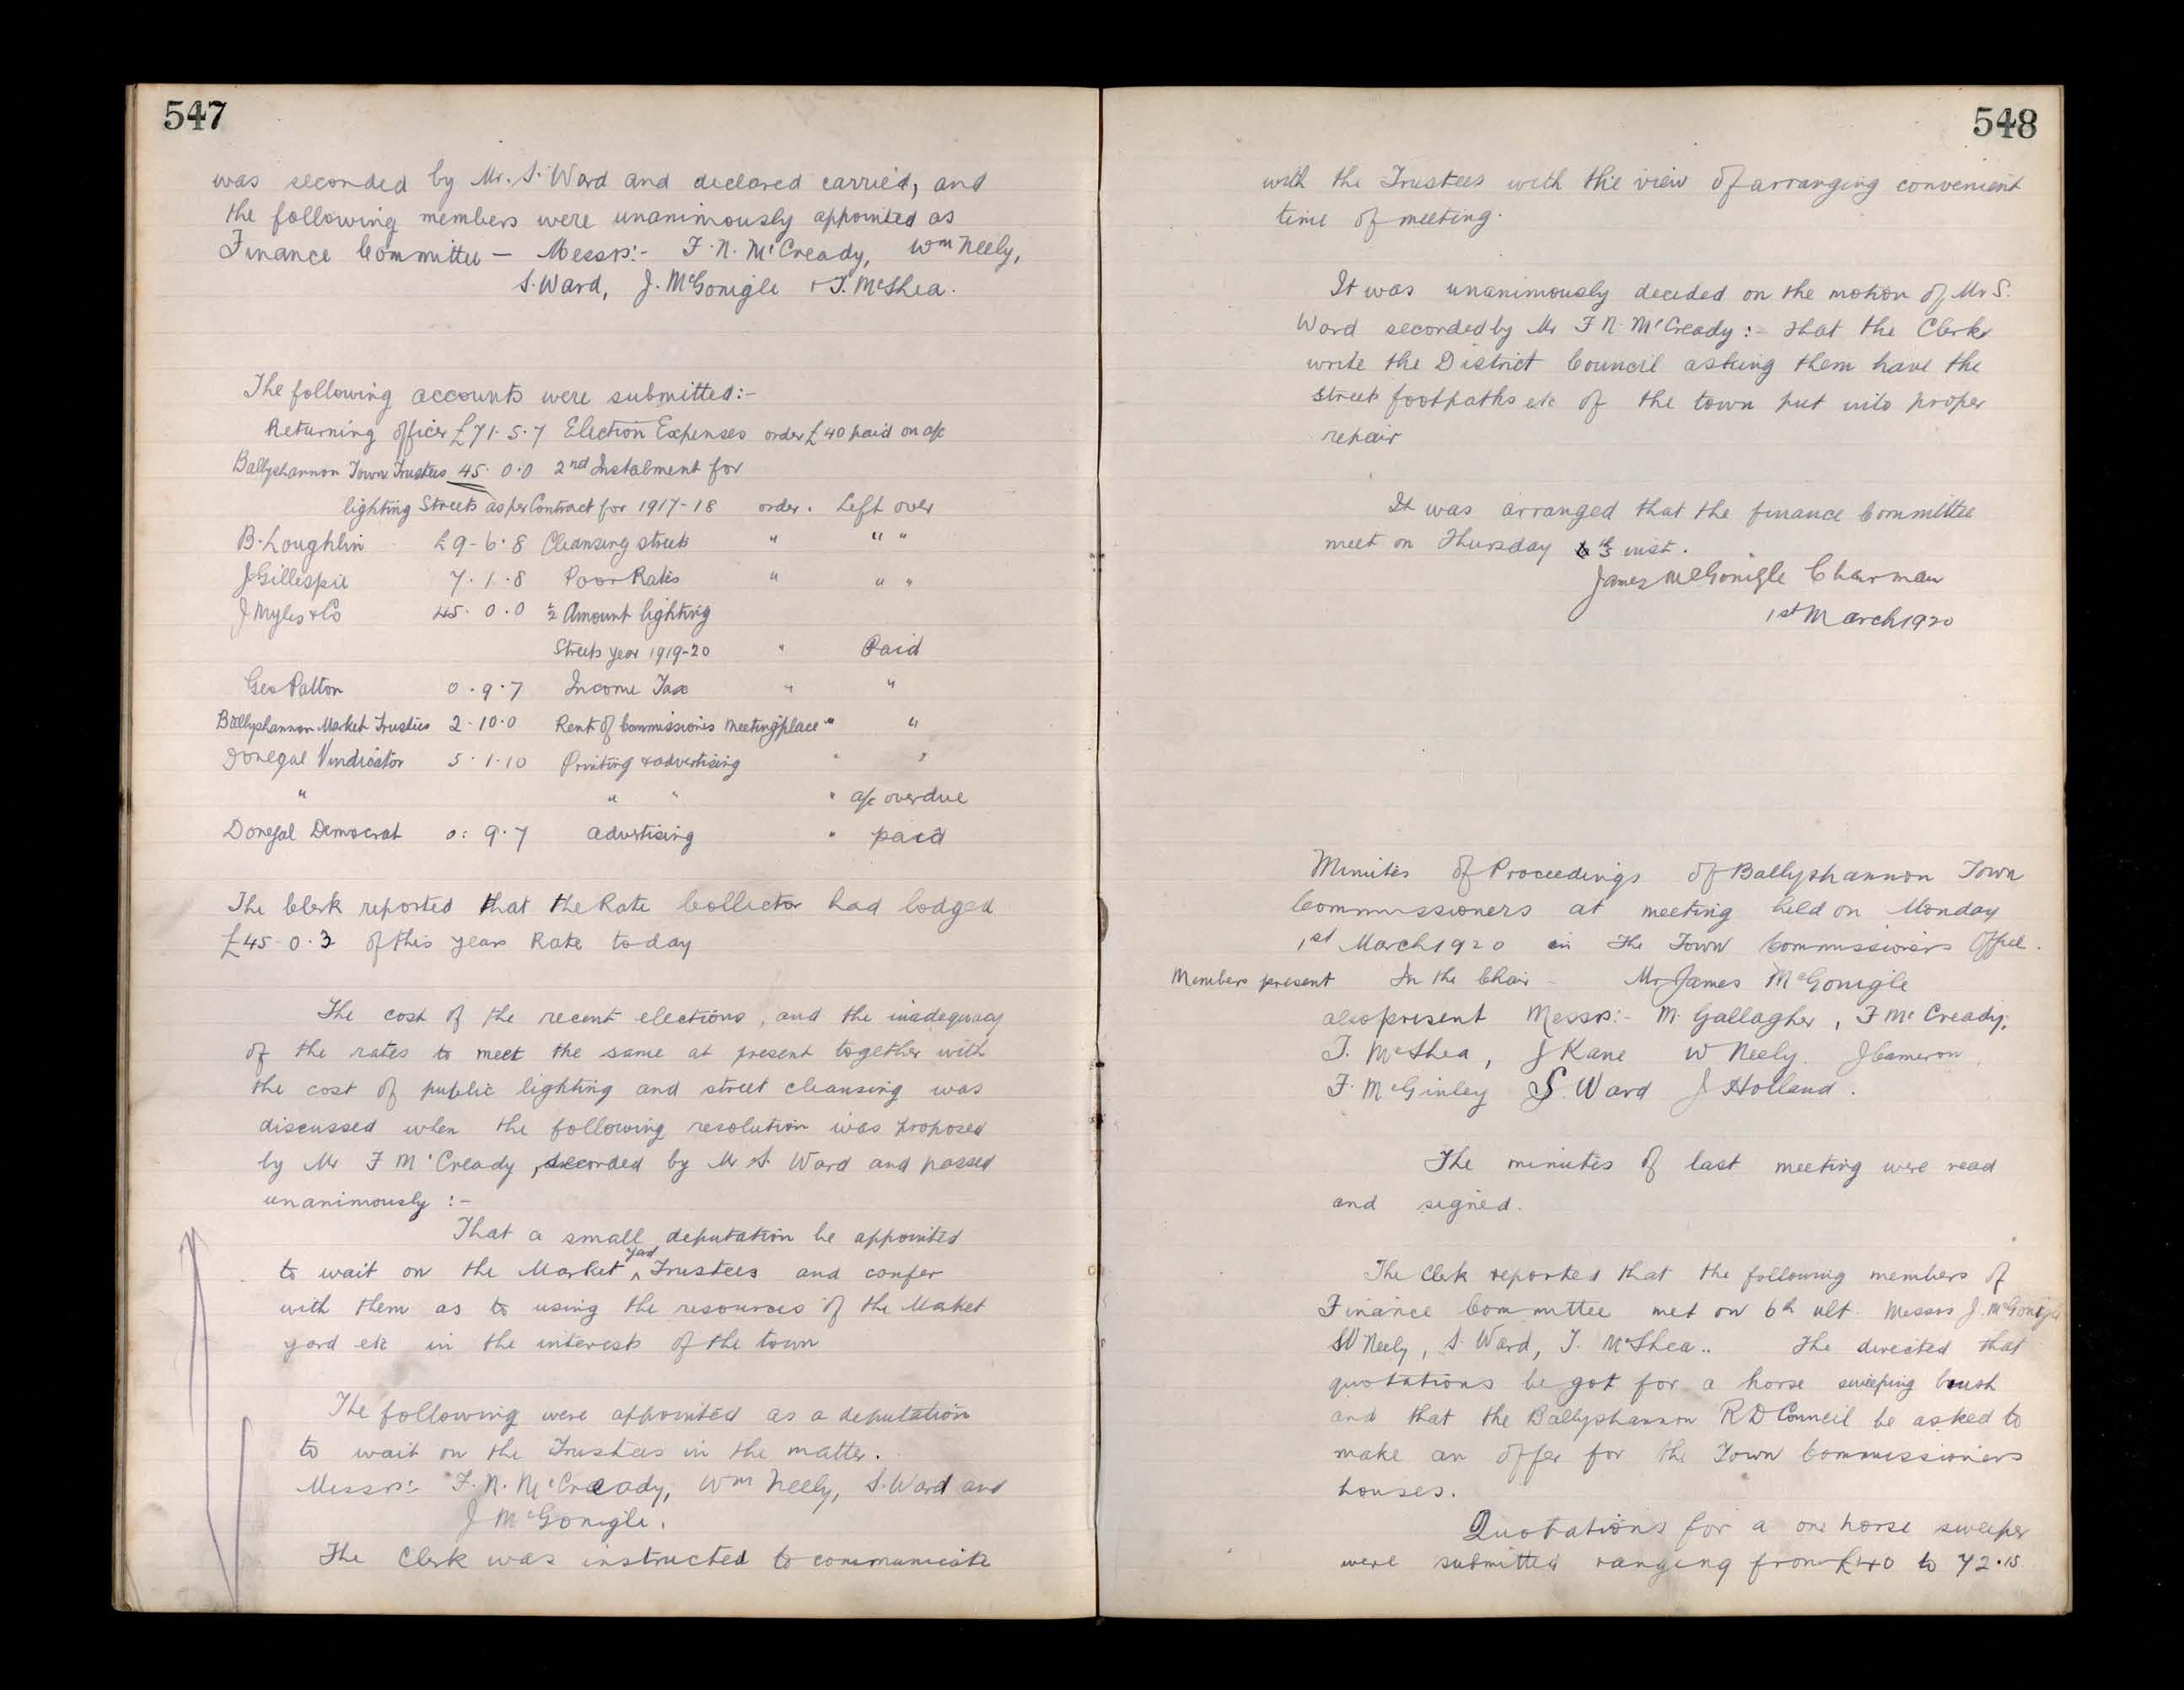 547
was seconded by Mr. S. Ward and declared carried, and
the following members were unanimously appointed as
Finance Committee — Messrs:- F. N. McCready, Wm Neely,
S. Ward, J. McGonigle + T. McShea.
The following accounts were submitted:-
Returning officer £71.5.7 Election Expenses order £40 paid on a/c
Ballyshannon Town Trustees 45. 0.0 2nd Instalment for
lighting Streets as per Contract for 1917-18 order. Left over
B. Loughlin £9-6.8 Cleansing streets " " "
J Gillespie 7.1.8 Poor Rates " " "
J Myles & Co 45.0.0 ½ Amount lighting
Streets year 1919-20 " Paid
Geo Patton 0.9.7 Income Tax " "
Ballyshannon Market Trustees 2.10.0 Rent of Commissioners Meetingplace " "
Donegal Vindicator 5.1.10 Printing & advertising " "
" " " " a/c overdue
Donegal Democrat 0: 9.7 advertising " paid
The Clerk reported that the Rate Collector had lodged
£45.0.3 of this years Rate today
The cost of the recent elections, and the inadequacy
of the rates to meet the same at present together with
the cost of public lighting and street cleansing was
discussed when the following resolution was proposed
by Mr F McCready, seconded by Mr S. Ward and passed
unanimously :-
That a small deputation be appointed
to wait on the Market yard Trustees and confer
with them as to using the resources of the Market
yard etc in the interests of the town
The following were appointed as a deputation
to wait on the Trustees in the matter.
Messrs:- F. N. McCready, Wm Neely, S. Ward and
J McGonigle.
The Clerk was instructed to communicate
548
with the Trustees with the view of arranging convenient
time of meeting.
It was unanimously decided on the motion of Mr S.
Ward seconded by Mr F N. McCready :- that the Clerk
write the District Council asking them have the
streets footpaths etc of the town put into proper
repair
It was arranged that the finance Committee
meet on Thursday inst.
James McGonigle Chairman
1st March 1920
Minutes of Proceedings of Ballyshannon Town
Commissioners at meeting held on Monday
1st March 1920 in the Town Commissioners Office.
Members present In the Chair - Mr James McGonigle
also present Messrs:- M Gallagher, F McCready,
T. McShea, J Kane W Neely. J Cameron,
F. McGinley S. Ward J Holland.
The minutes of last meeting were read
and signed.
The Clerk reported that the following members of
Finance Committee met on 6th ult. Messrs J. McGonigle
W Neely, S. Ward, T. McShea.. The directed that
quotations be got for a horse sweeping brush
and that the Ballyshannon R D Council be asked to
make an offer for the Town Commissioners
houses.
Quotations for a one horse sweeper
were submitted ranging from £40 to 72.15